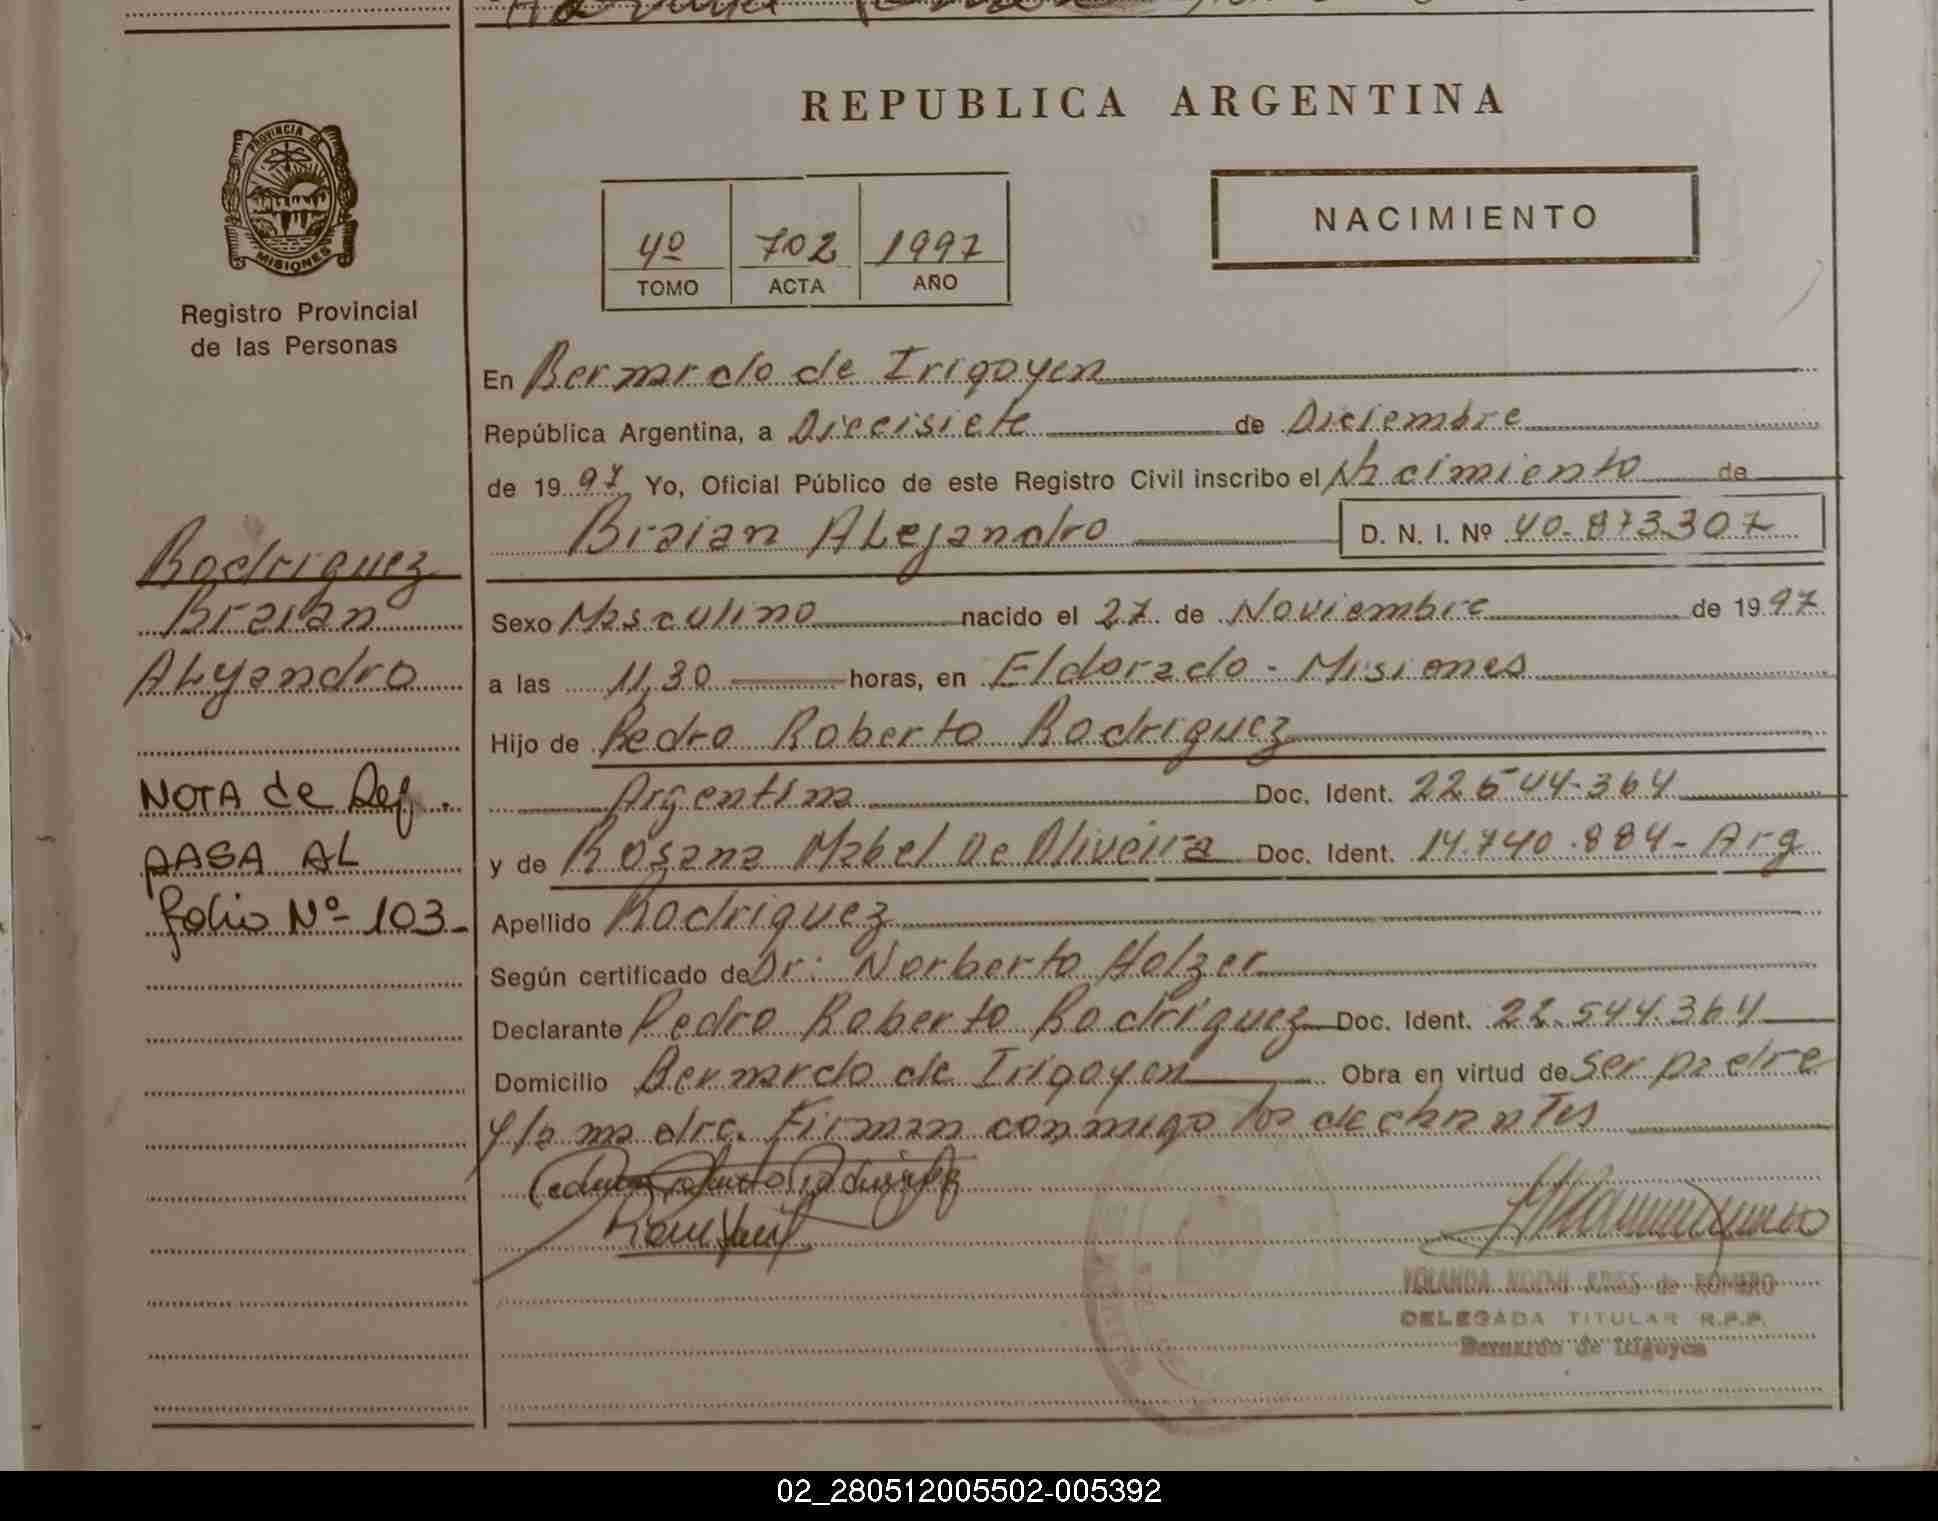 REPUBLICA ARGENTINA
PROVINCIA DE
MISIONES
Registro Provincial
de las Personas
4º 702 1997
TOMO ACTA AÑO
NACIMIENTO
En Bernardo de Irigoyen
República Argentina, a Diecisiete de Diciembre
de 1997 Yo, Oficial Público de este Registro Civil inscribo el Nacimiento de
Braian Alejandro D. N. I. Nº 40.873.307
Rodriguez
Braian
Alejandro
Sexo Masculino nacido el 27 de Noviembre de 1997
a las 11,30 horas, en Eldorado - Misiones
Hijo de Pedro Roberto Rodriguez
Argentina Doc. Ident. 22.544.364
y de Rosana Mabel De Oliveira Doc. Ident. 14.740.884 - Arg
NOTA de Def.
PASA AL
folio Nº 103-
Apellido Rodriguez
Según certificado de Dr: Norberto Holzer
Declarante Pedro Roberto Rodriguez Doc. Ident. 22.544.364
Domicilio Bernardo de Irigoyen Obra en virtud de ser padre
y la madre. Firman conmigo los declarantes
YOLANDA NOEMI KRISS de ROMERO
DELEGADA TITULAR R.P.P.
Bernardo de Irigoyen
02_280512005502-005392